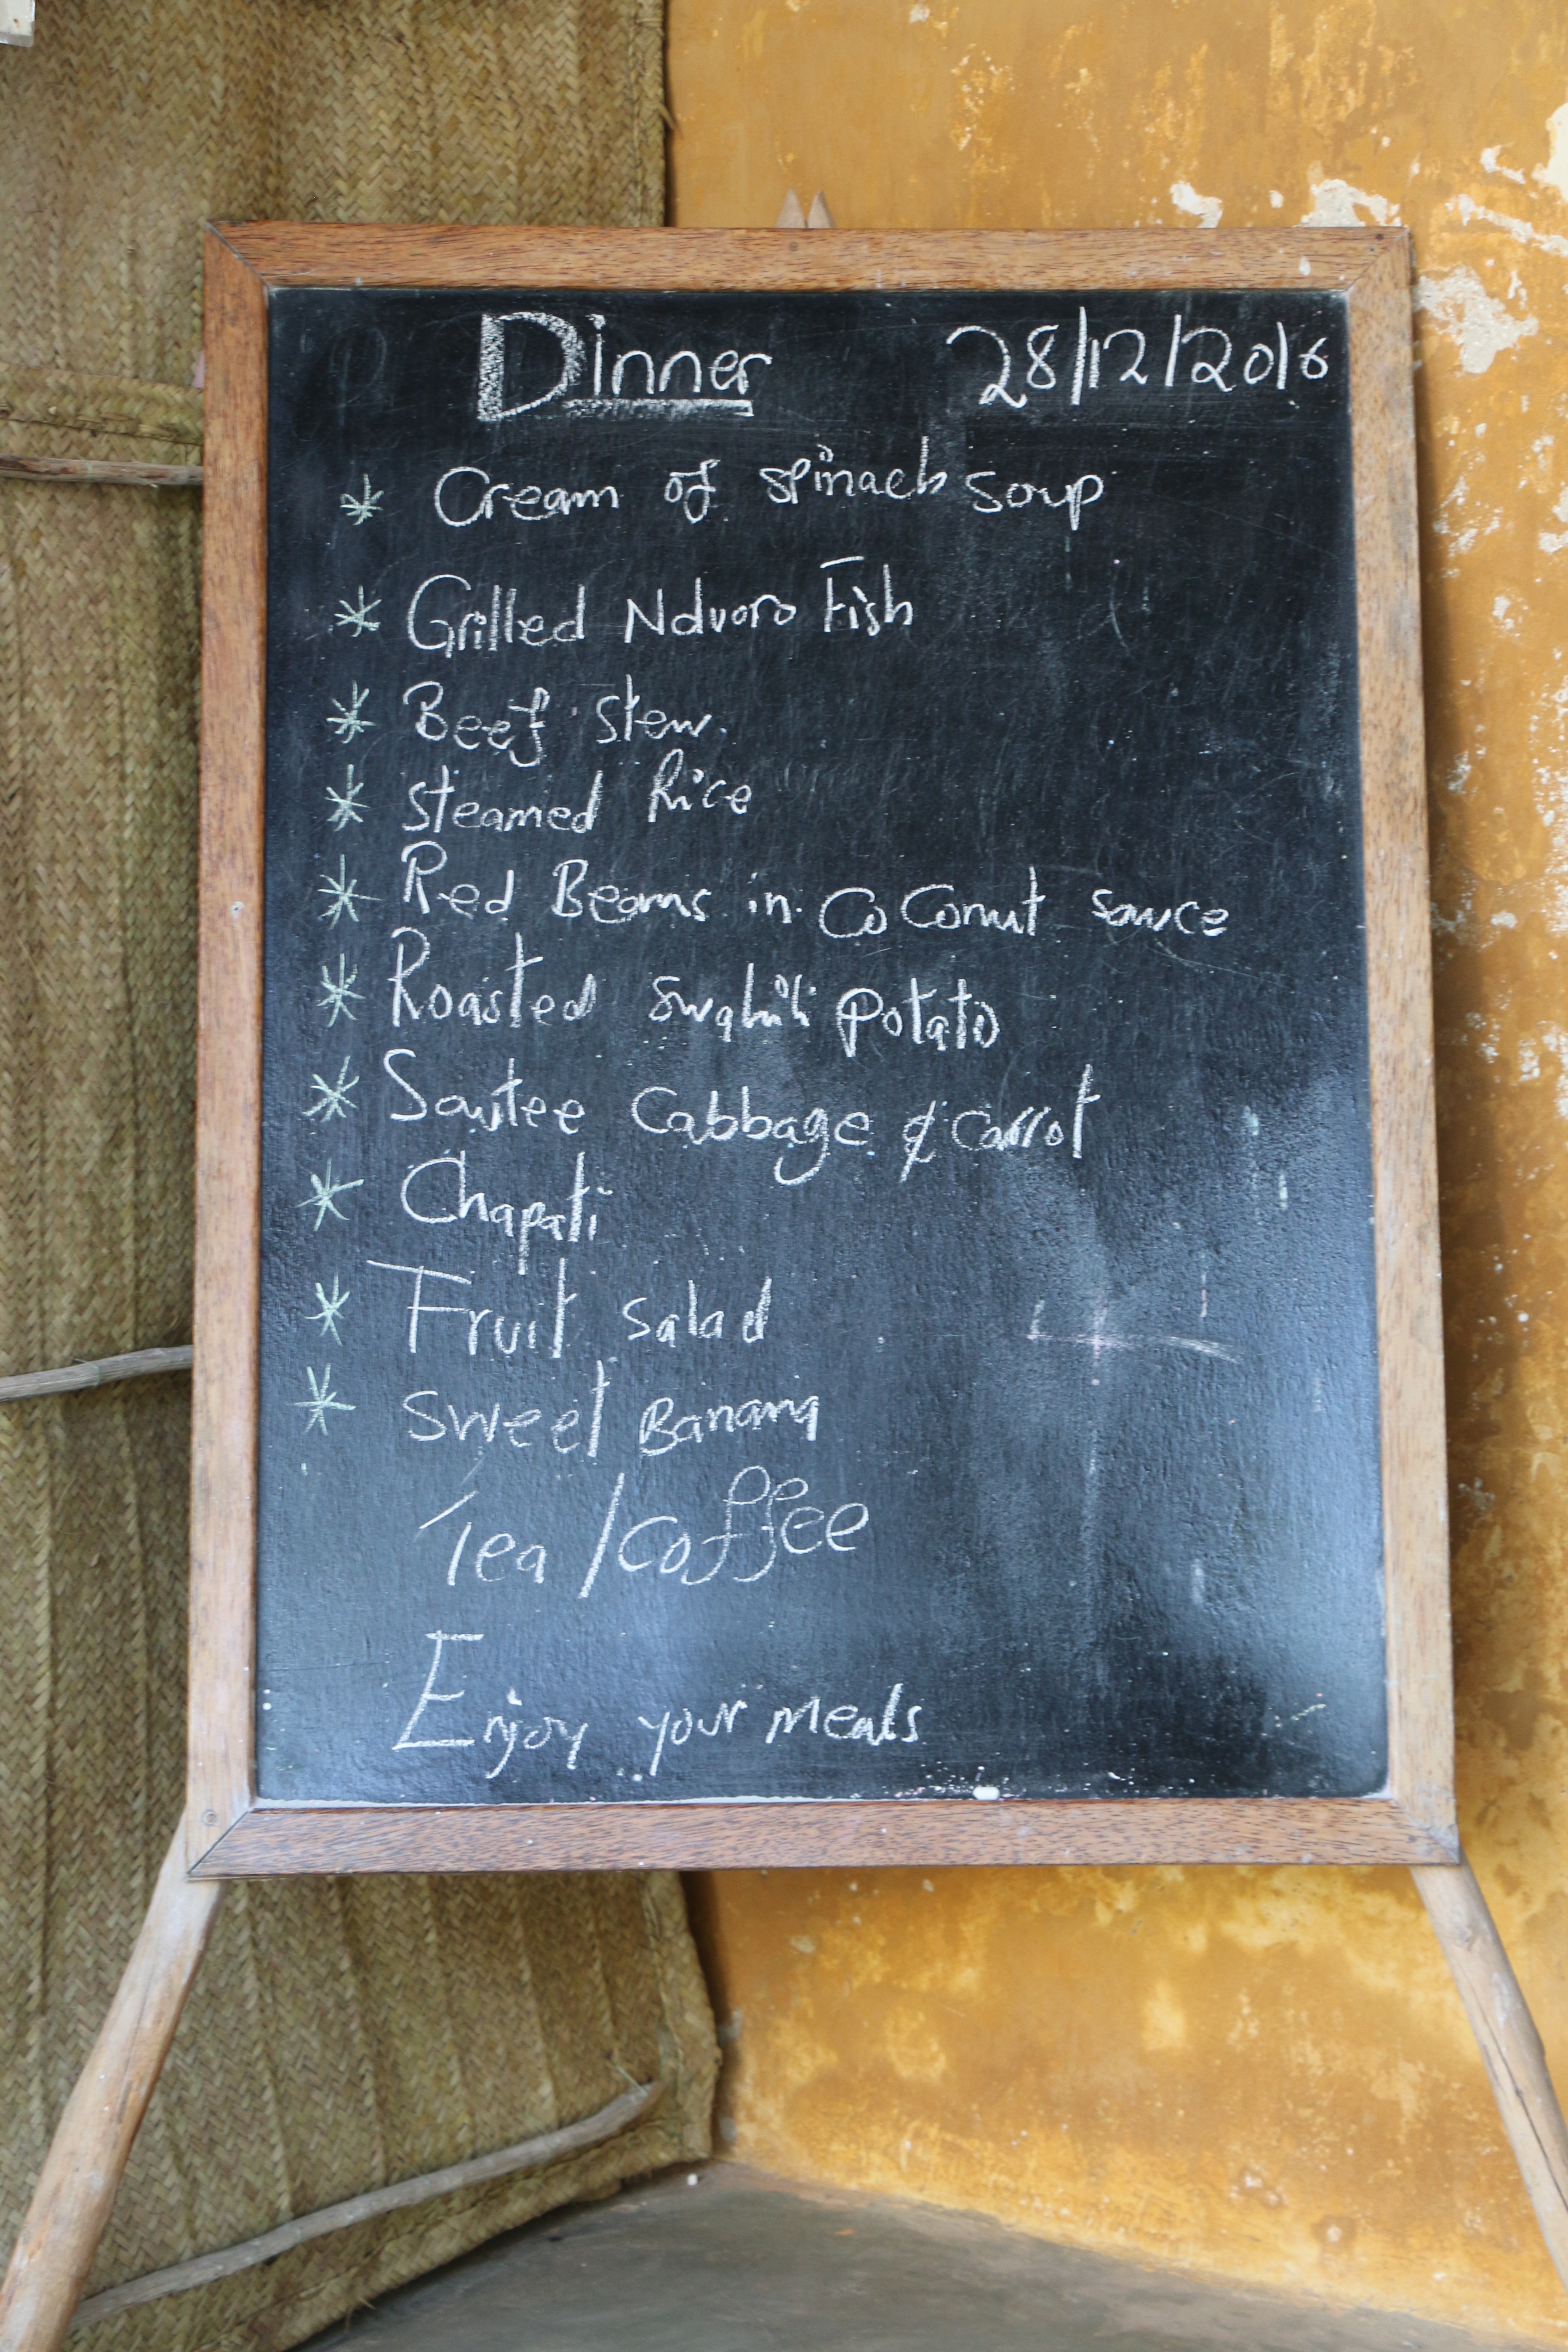 Dinner 28/12/2016
* Cream of Spinach Soup
* Grilled Nduoro Fish
* Beef Stew.
* Steamed Rice
* Red Beans in CoConut Sauce
* Roasted Swahili Potato
* Sautee Cabbage & Carrot
* Chapati
* Fruit Salad
* Sweet Banana
Tea/Coffee
Enjoy your meals